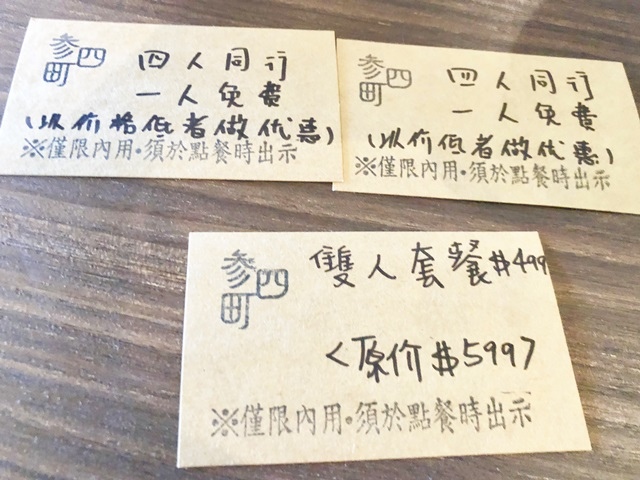 参四町
四人同行
一人免費
(以价格低者做优惠)
※僅限內用·須於點餐時出示
参四町
四人同行
一人免費
(以价低者做优惠)
※僅限內用·須於點餐時出示
参四町
雙人套餐$499
<原价$599>
※僅限內用·須於點餐時出示